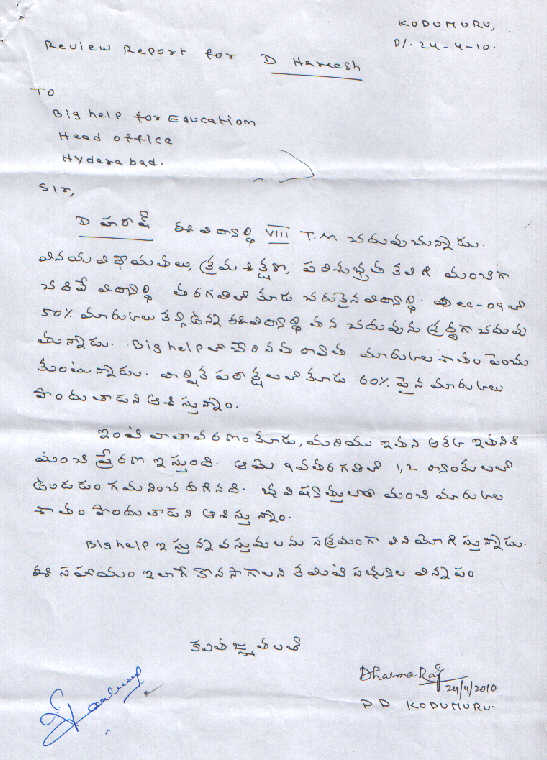 KODUMURU,
D/. 24-4-10.
Review Report for D Hareesh
To
Big help for Education
Head office
Hyderabad.
Sir,
D హరీష్ ఈ విద్యార్థి VIII T.M చదువుచున్నాడు.
వినయ విధేయతలు, క్రమశిక్షణ, పరిశుభ్రత కలిగి మంచిగా
చదివే విద్యార్థి తరగతిలో కూడ చురుకైన విద్యార్థి.
50% మార్కులు ఈ విద్యార్థి తన చదువును శ్రద్ధగా చదువు
చున్నాడు. Big help లో మార్కులు శాతం పెంచు
కుంటున్నాడు. వార్షిక పరీక్షలలో కూడ 60% పైన మార్కులు
పొందుతాడని ఆశిస్తున్నాం.
ఇంటి వాతావరణం కూడ, మరియు ఇతని అక్క ఇతనికి
మంచి ప్రేరణ ఇస్తుంది. ఆమె తరగతిలో 1, 2 ర్యాంకులలో
ఉండడం గమనించ దగినది. భవిష్యత్తులో మంచి మార్కులు
శాతం పొందుతాడని ఆశిస్తున్నాం.
Big help ఇస్తున్న వస్తువులను సక్రమంగా వినియోగిస్తున్నాడు.
ఈ సహాయం ఇలాగే కొనసాగాలని కమిటీ సభ్యుల విన్నపం
కృతజ్ఞతలతో
Dharma Raj
24/4/2010
P.D KODUMURU.